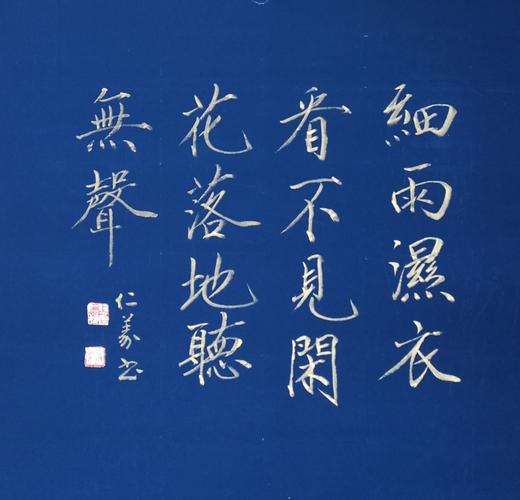 細雨濕衣
看不見閑
花落地聽
無聲
仁義书